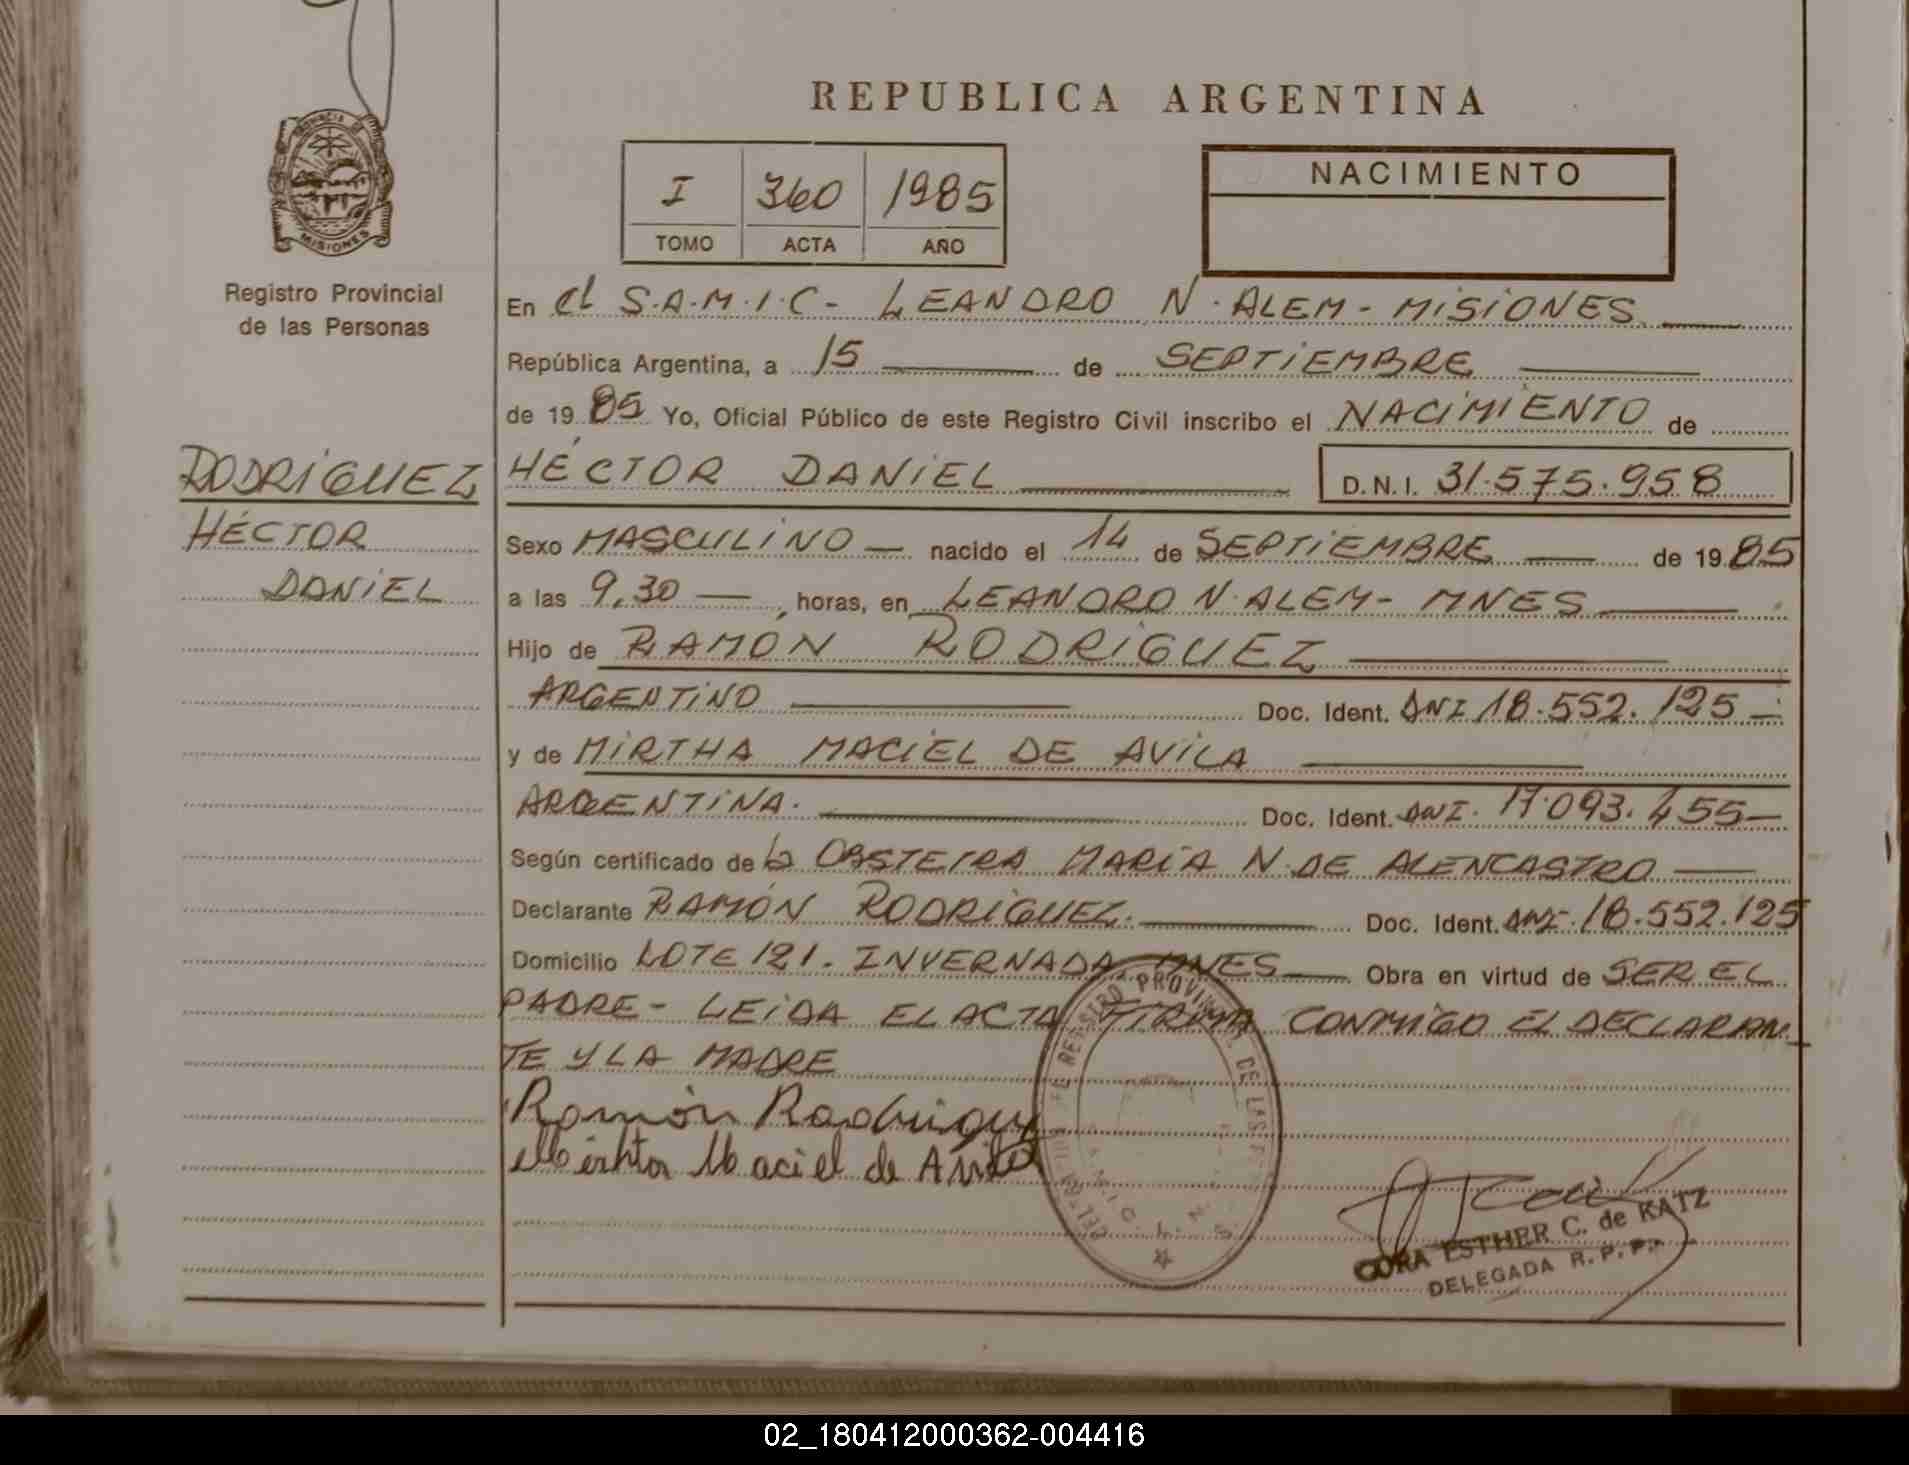 REPUBLICA ARGENTINA
I 360 1985
TOMO ACTA AÑO
NACIMIENTO
PROVINCIA DE
MISIONES
Registro Provincial
de las Personas
En el S.A.M.I.C- LEANDRO N. ALEM - MISIONES
República Argentina, a 15 de SEPTIEMBRE
de 1985 Yo, Oficial Público de este Registro Civil inscribo el NACIMIENTO de
RODRIGUEZ
HÉCTOR
DANIEL
HÉCTOR DANIEL D.N.I. 31.575.958
Sexo MASCULINO nacido el 14 de SEPTIEMBRE de 1985
a las 9,30 horas, en LEANDRO N. ALEM - MNES
Hijo de RAMÓN RODRÍGUEZ
ARGENTINO Doc. Ident. DNI 18.552.125
y de MIRTHA MACIEL DE AVILA
ARGENTINA. Doc. Ident. DNI. 17.093.455
Según certificado de la OBSTETRA MARÍA N. DE ALENCASTRO
Declarante RAMÓN RODRÍGUEZ. Doc. Ident. DNI. 18.552.125
Domicilio LOTE 121. INVERNADA. MNES Obra en virtud de SER EL
PADRE - LEIDA EL ACTA FIRMA CONMIGO EL DECLARAN
TE Y LA MADRE
Ramón Rodriguez
Mirhta Maciel de Avila
CORA ESTHER C. de KATZ
DELEGADA R. P. P.
02_180412000362-004416